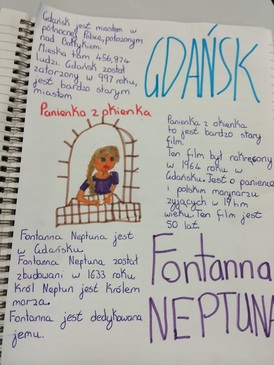 Gdańsk jest miastem w
północnej Polsce, położonym
nad Bałtykiem
Mieszka tam 456,974
ludzi. Gdańsk został
założony, w 997 roku,
jest bardzo starym
miastem
GDAŃSK
Panienka z okienka
Panienka z okienka
to jest bardzo stary
film.
Ten film był nakręcony
w 1964 roku w
Gdańsku. Jest o panience
i polskim marynarzu
żyjących w 17tym
wieku. Ten film jest
50 lat.
Fontanna Neptuna jest
w Gdańsku
Fontanna Neptuna został
zbudowani w 1633 roku
Król Neptun jest Królem
morza.
Fontanna jest dedykowana
jemu.
Fontanna
NEPTUNA